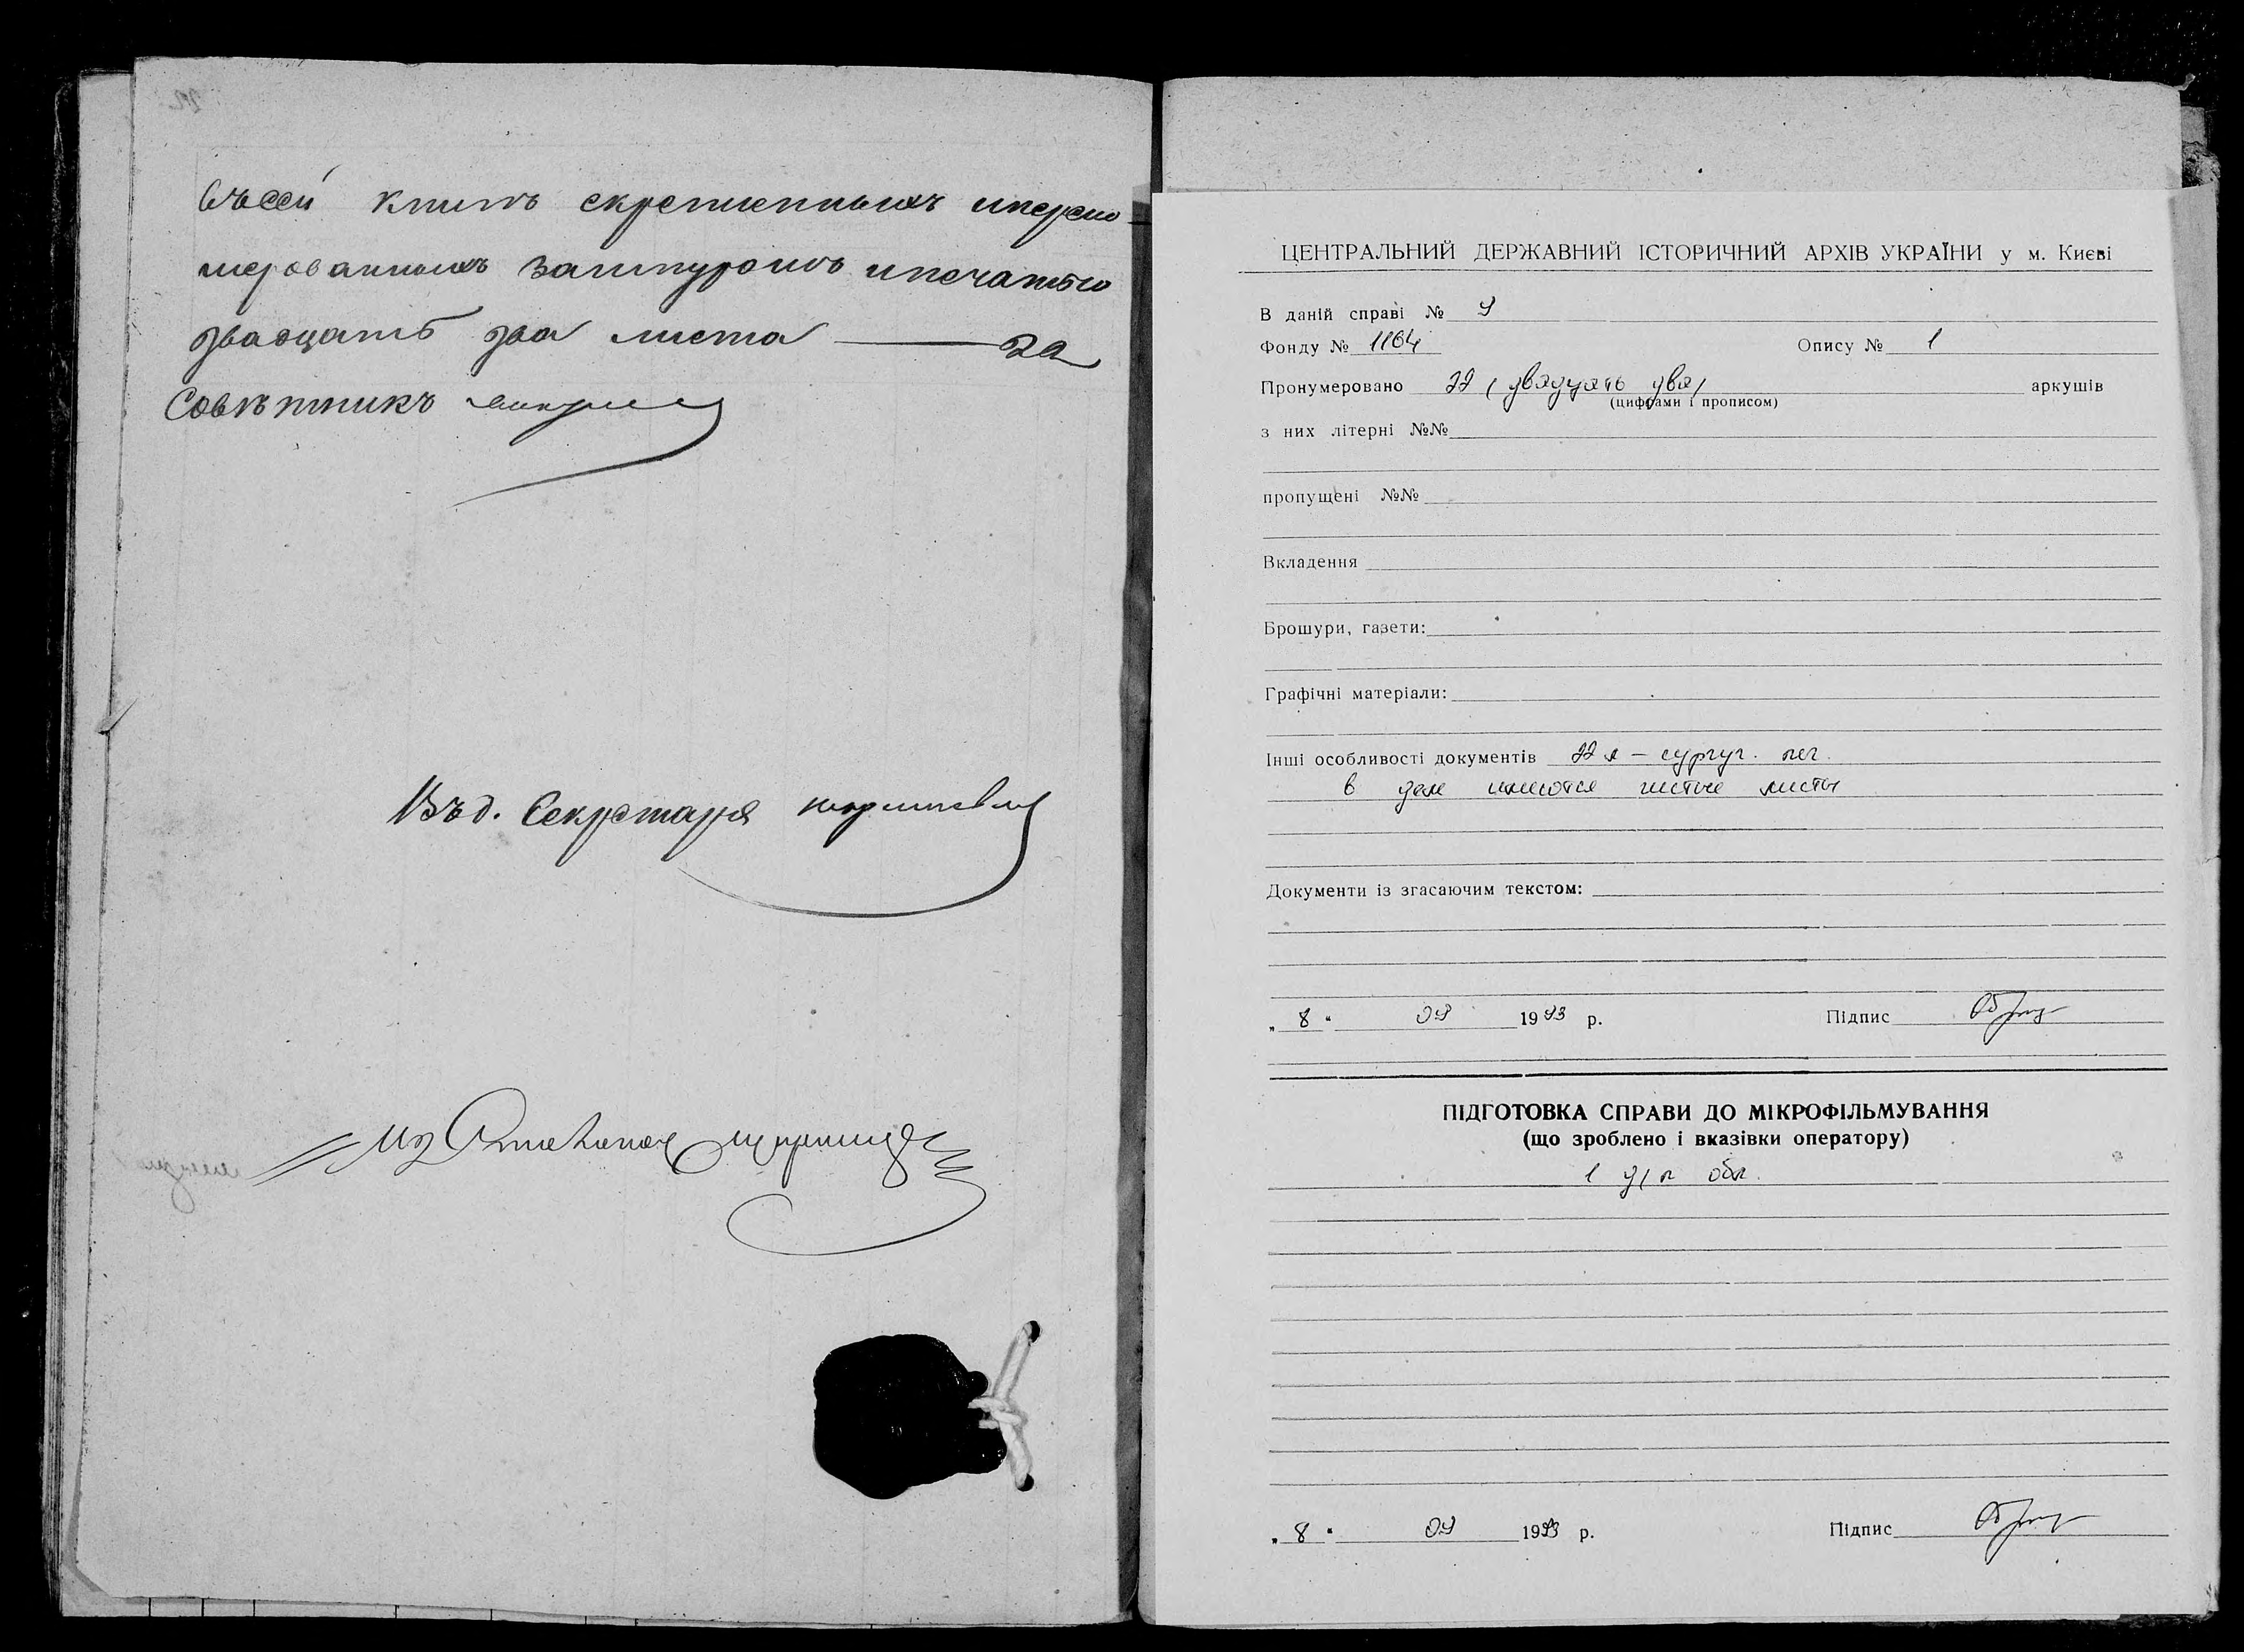 Въсей книгѣ скрепленныхъ иперено-
мерованныхъ зашнуромъ ипечатью
двадцать два листа — 22
Совѣтникъ
Въд. Секретаря
ЦЕНТРАЛЬНИЙ ДЕРЖАВНИЙ ІСТОРИЧНИЙ АРХІВ УКРАЇНИ у м. Києві
В даній справі № 9
Фонду № 1164 Опису № 1
Пронумеровано 22 (двадцать два) аркушів
(цифрами і прописом)
з них літерні №№
пропущені №№
Вкладення
Брошури, газети:
Графічні матеріали:
Інші особливості документів 22 л – сургуч. печ.
в деле имеются чистые листы
Документи із згасаючим текстом:
„ 8 “ 09 1993 р. Підпис
ПІДГОТОВКА СПРАВИ ДО МІКРОФІЛЬМУВАННЯ
(що зроблено і вказівки оператору)
1 д/л обл.
„ 8 “ 09 1993 р. Підпис